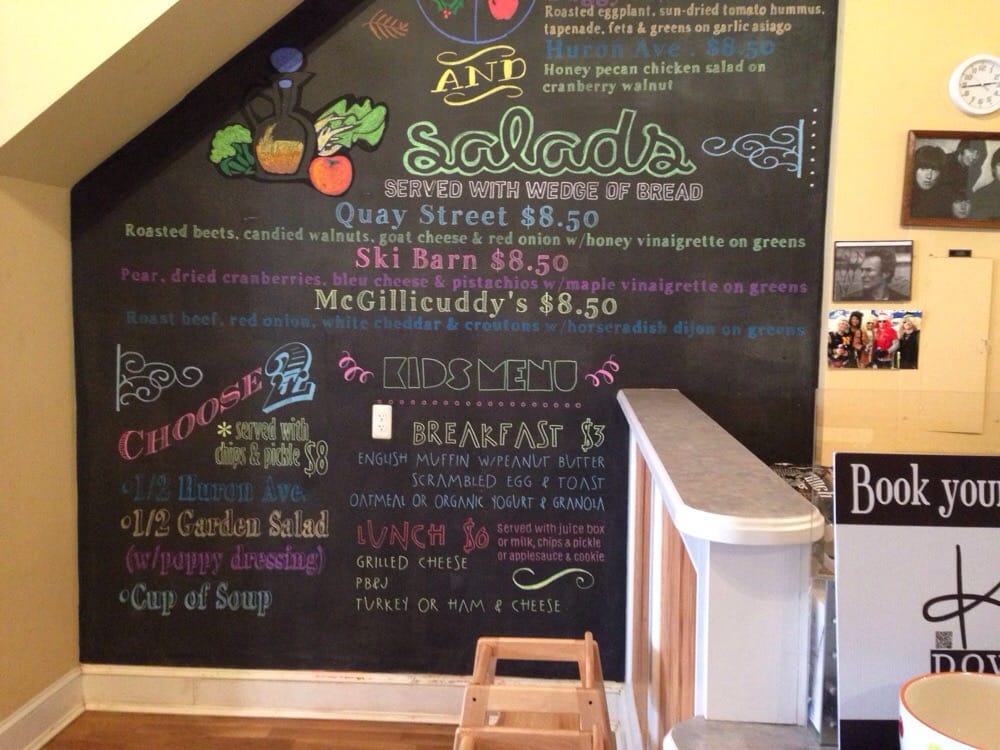 Roasted eggplant, sun-dried tomato hummus,
tapenade, feta & greens on garlic asiago
Huron Ave. $8.50
Honey pecan chicken salad on
cranberry walnut
AND
salads
SERVED WITH WEDGE OF BREAD
Quay Street $8.50
Roasted beets, candied walnuts, goat cheese & red onion w/honey vinaigrette on greens
Ski Barn $8.50
Pear, dried cranberries, bleu cheese & pistachios w/maple vinaigrette on greens
McGillicuddy's $8.50
Roast beef, red onion, white cheddar & croutons w/horseradish dijon on greens
CHOOSE 2
*served with
chips & pickle $8
•1/2 Huron Ave.
•1/2 Garden Salad
(w/poppy dressing)
•Cup of Soup
KIDS MENU
BREAKFAST $3
ENGLISH MUFFIN W/PEANUT BUTTER
SCRAMBLED EGG & TOAST
OATMEAL OR ORGANIC YOGURT & GRANOLA
LUNCH $6
served with juice box
or milk, chips & pickle
or applesauce & cookie
GRILLED CHEESE
PB&J
TURKEY OR HAM & CHEESE
Book your